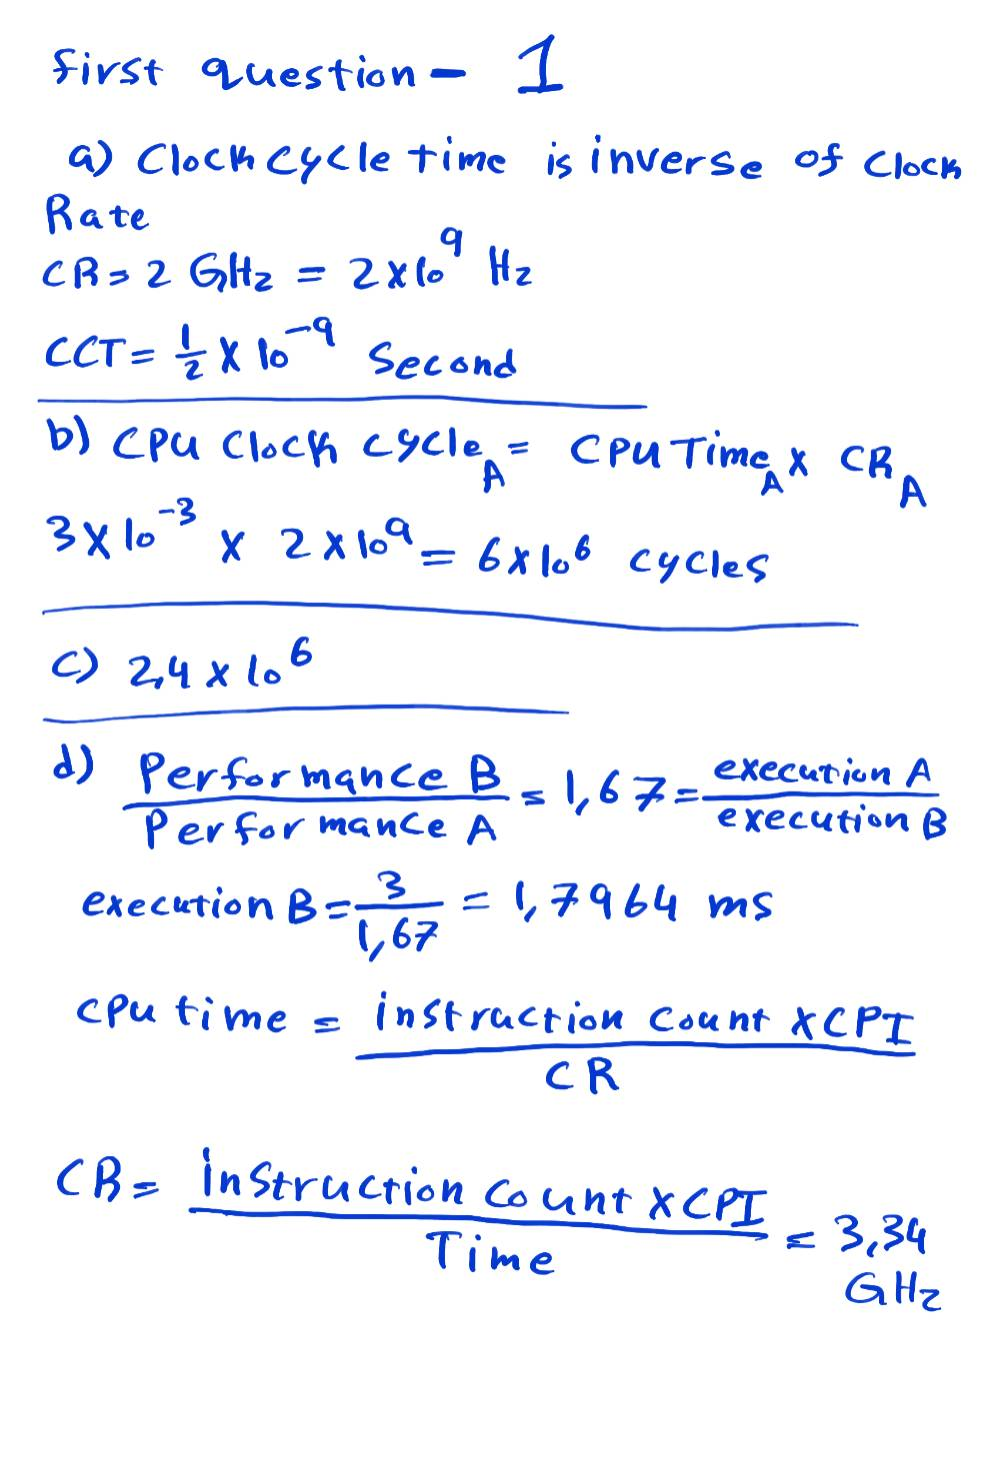 first question - 1
a) Clock cycle time is inverse of Clock
Rate
CR = 2 GHz = 2x10^9 Hz
CCT = 1/2 x 10^-9 Second
b) CPU Clock cycle_A = CPU Time_A x CR_A
3x10^-3 x 2x10^9 = 6x10^6 cycles
c) 2,4 x 10^6
d) Performance B / Performance A = 1,67 = execution A / execution B
execution B = 3 / 1,67 = 1,7964 ms
cpu time = instruction count x CPI / CR
CR = instruction count x CPI / Time = 3,34
GHz